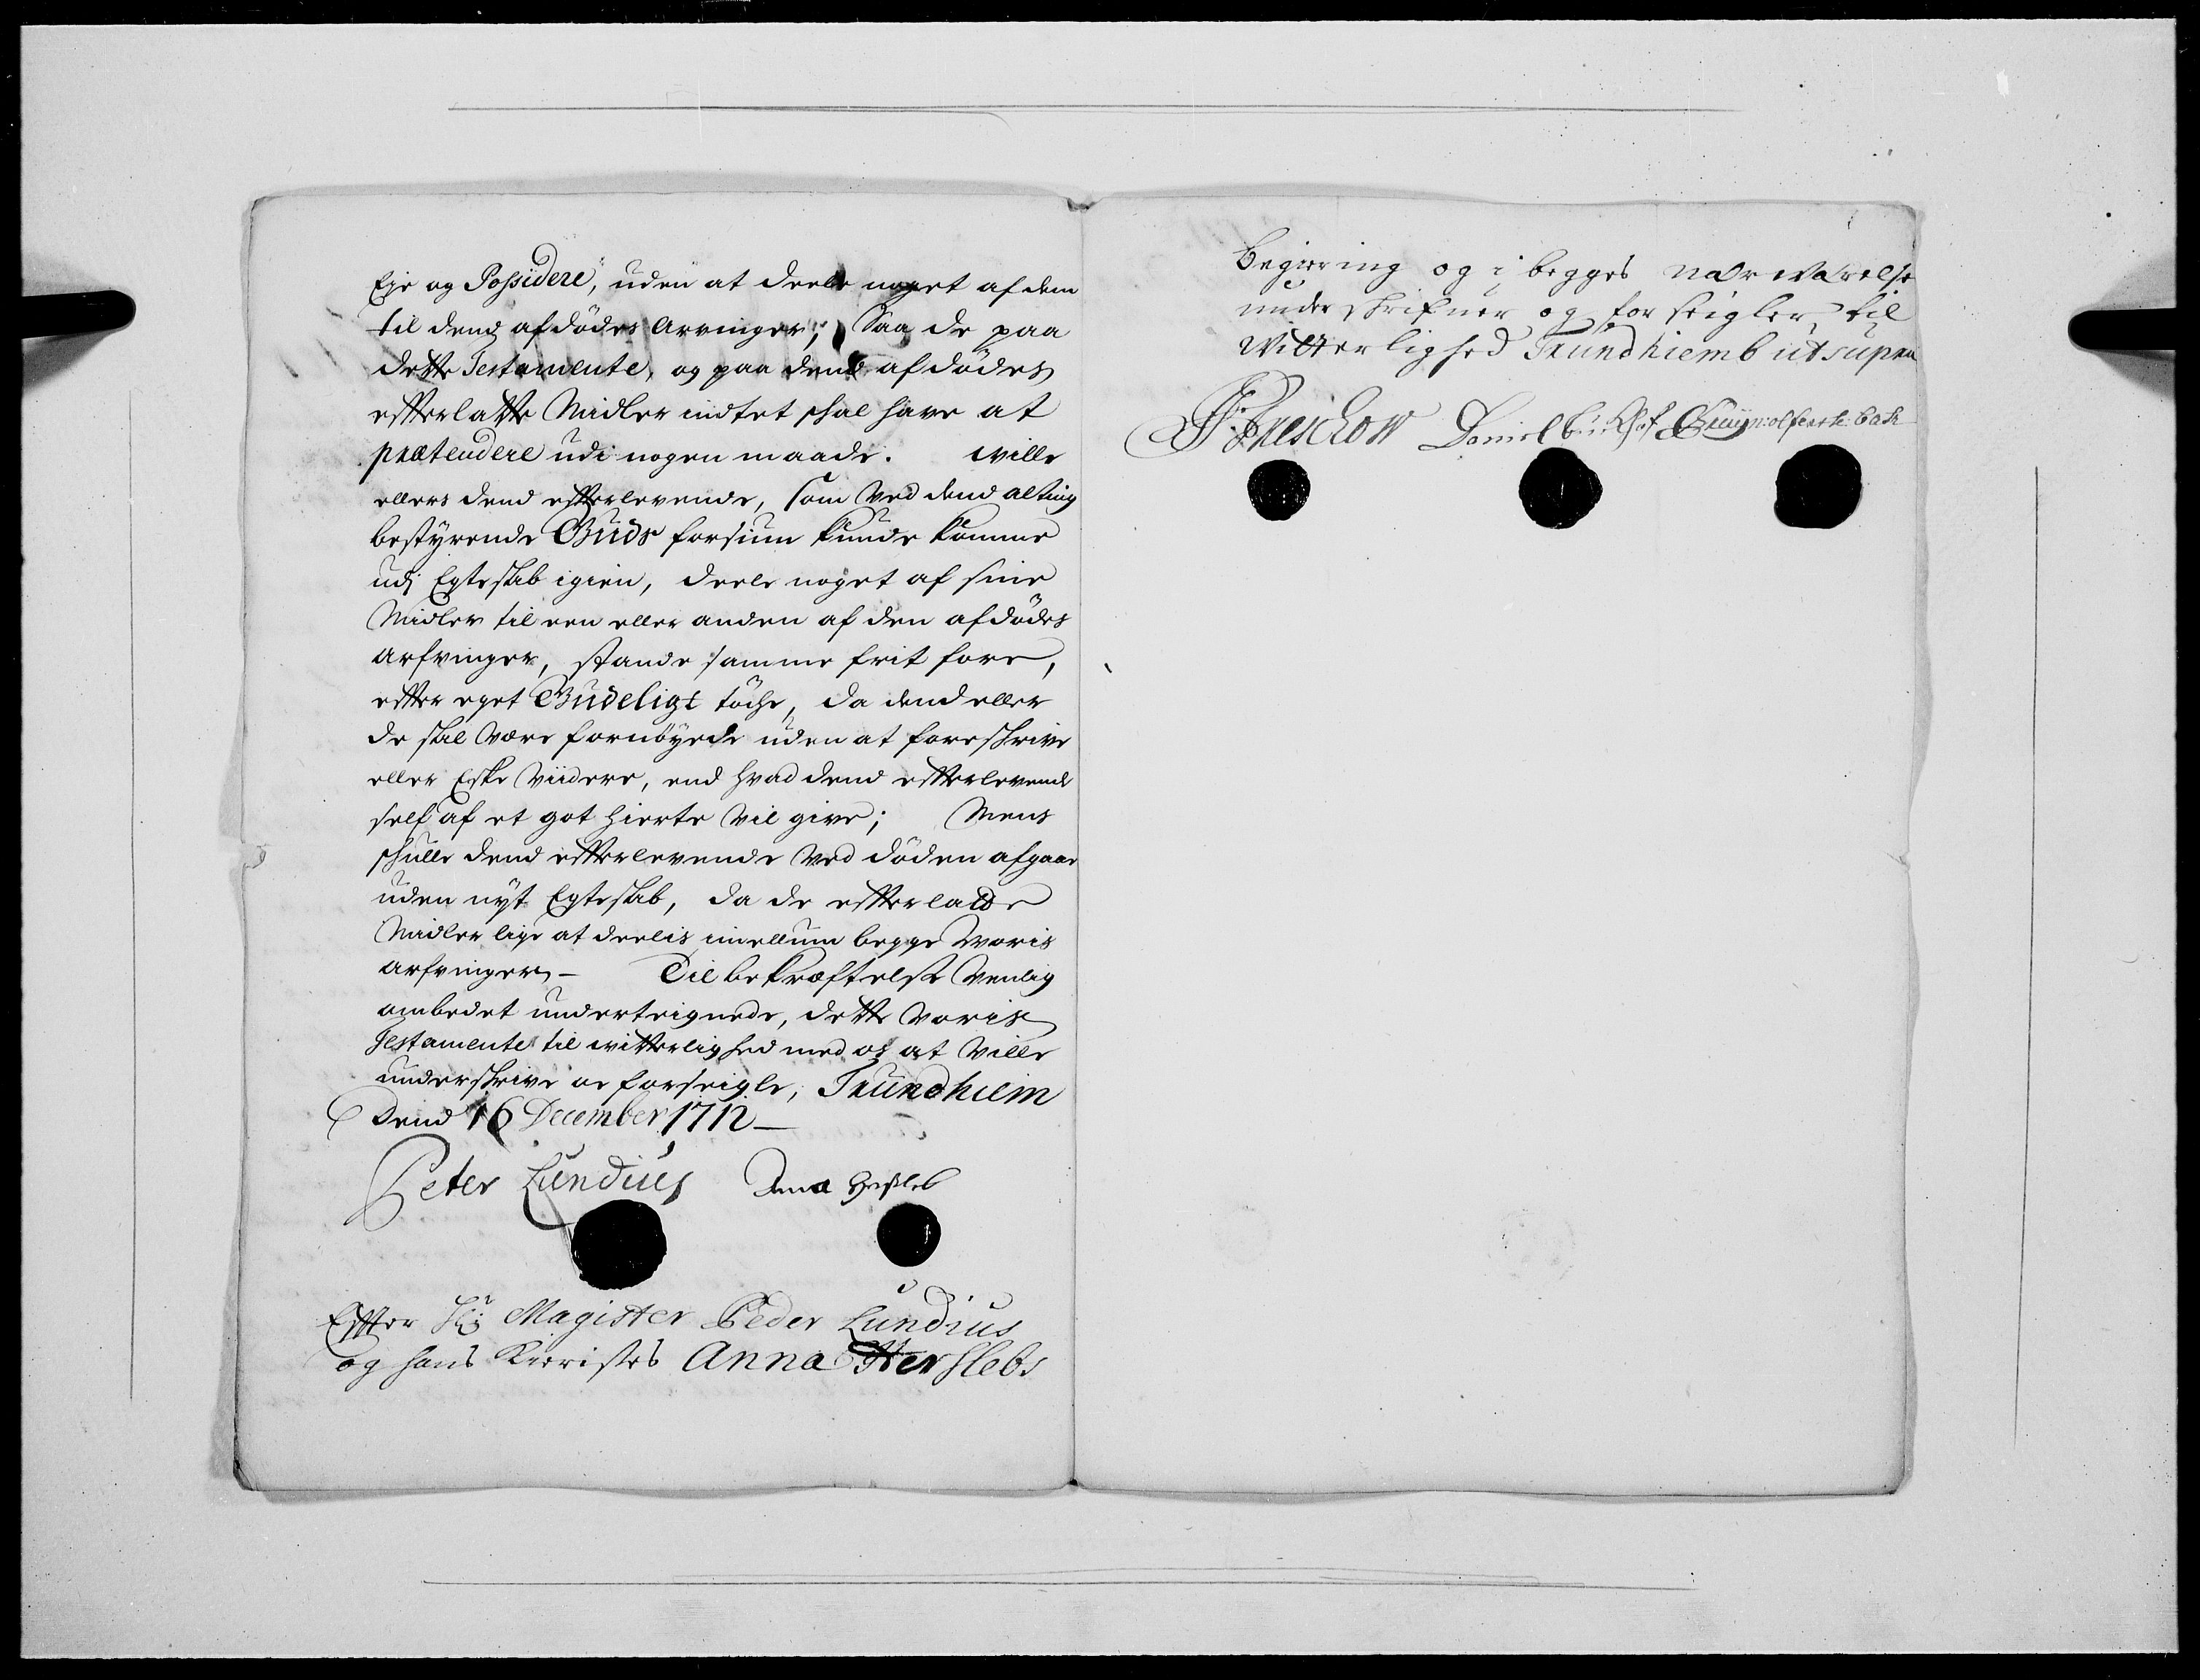 Eje og Possidere, uden at deele noget af dem
til dend afdödes Arvinger; Saa de paa
dette Testamente, og paa dend afdödes
efterlatte Midler indtet skal have at
prætendere udi nogen maade. Wille
ellers dend efterlevende, som ved dend alting
bestyrende Guds forsiun kunde komme
udj Egteskab igien, deele noget af sine
Midler til een eller anden af den afdödes
arfvinger, stande samme frit fore,
efter eget Gudeligt töche, da dend eller
de skal være fornöyede uden at foreskrive
eller Eske viidere, end hvad dend efterlevende
self af et got hierte vil give; Mens
skulle dend efterlevende ved döden afgaae
uden nyt Egteskab, da de efterladte
Midler lige at deelis imellum begge voris
arfvinger, - Til bekræftelse venlig
ombedet underteignede, dette voris
Testamente til witterlighed med os at ville
underskrive oc forseigle, Trundhiem
Dend 16 December 1712
Peter Lundius Anna Hersleb
Efter Hr Magister Peder Lundius
og hans Kieristes Anna Herslebs
begiering og i begges nærværelse
underskrifver og forseigler til
vitterlighed Trundhiemb ut supra
Freichow Daniel